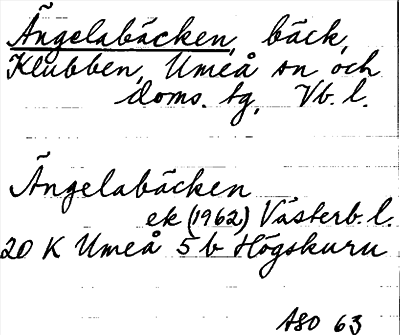 Ängelabäcken, bäck,
Klubben, Umeå sn och
doms. tg, Vb. l.
Ängelabäcken
ek (1962) Västerb. l.
20 K Umeå 5 b Högskuru
ASO 63